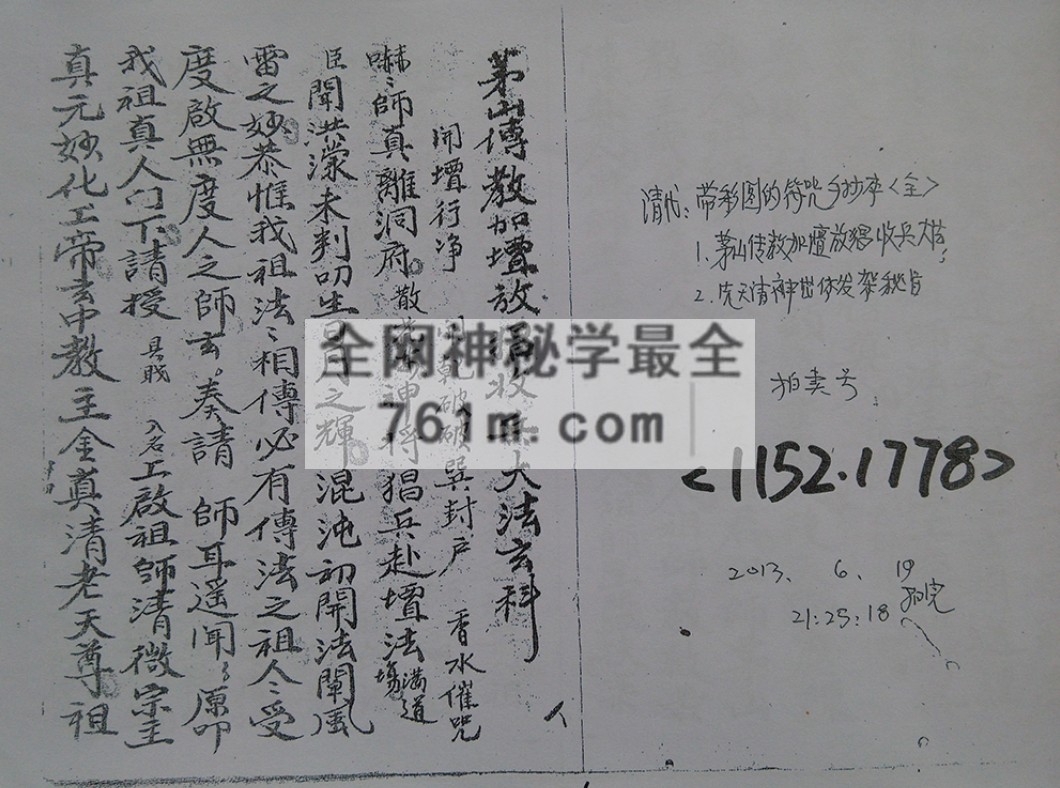 茅山傳教加壇放猖收兵大法玄科
開壇行净 破巽封戶 香水催咒
嚇嚇師真離洞府散 神将猖兵赴壇法塲滿道
臣聞洪濛未判叨生 之輝混沌初開法闡風
雷之妙恭惟我祖法法相傳必有傳法之祖人人受
度啟無度人之師玄奏請 師耳遥聞聞原叩
我祖真人門下請授 具戝 入名上啟祖師清微宗主
真元妙化工帝玄中教主金真清老天尊祖
全网神秘学最全
761m.com
清代:带彩图的符咒手抄本<全>
1.茅山传教加壇放猖收兵大法
2.先天清神出体发架秘旨
拍卖号:
<1152.1778>
2013. 6. 19
21:25:18